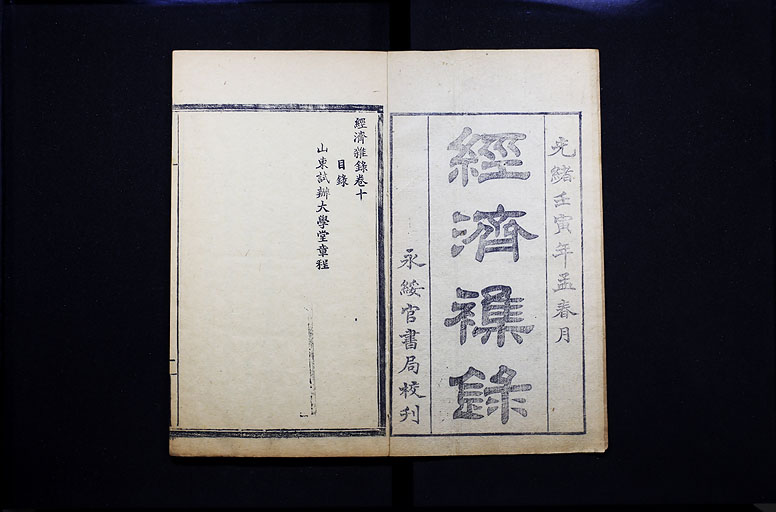 光緒壬寅年孟春月
經濟襍錄
永綏官書局校刋
經濟雜錄卷十
目錄
山東試辦大學堂章程